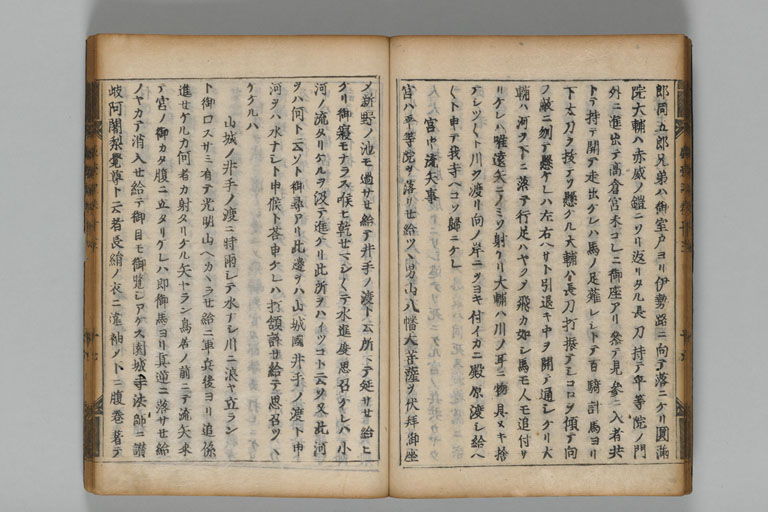 郎同五郎兄弟ハ御室戸ヨリ伊勢路ニ向テ落ニケリ圓滿
院大輔ハ赤威ノ鎧ニソリ返リタル長刀持テ平等院ノ門
外ニ進出テ高倉宮未コレニ御座アリ参テ見參ニ入者共
トテ持テ開テ走出ケレハ馬ノ足薙レシトテ百騎計馬ヨリ
下太刀ヲ抜テソ懸ケル大輔公長刀打振テシコロヲ傾テ向
ノ敵ニ刎テ懸ケレハ左右ヘサト引退キ中ヲ開テ通シケリ大
輔ハ河ヲ下ニ落テ行足ハヤクソ飛カ如シ馬モ人モ追付サ
リケレハ唯遠矢ニノミソ射ケリ大輔ハ川ノ耳ニ物具ヌキ捨
テシツ〳〵ト川ヲ渡リ向ノ岸ニ付イカニ殿原渡シ給ヘ
〳〵ト申テ我寺ヘコソ歸ニケレ
宮中流矢事
宮ハ平等院ヲ落サセ給ツヽ男山八幡大菩薩ヲ伏拝御座
ノ新野ノ池モ過サセ給テ井手ノ渡ト云所ニテ延サセ給ヒ
ケリ御寝モナラス喉乾セマシ〳〵テ水進度思召ケレハ小
河ノ流タリケルヲ汲テ進ケリ此所ヲハイツコト云ソ又此河
ヲハ何ト云ソト御尋アリ此邊ヲハ山城國井手ノ渡ト申
河ヲハ水ナシト申候ト答申ケレハ打頷許セ給テ思召ツヽ
ケケルハ
山城ノ井手ノ渡ニ時雨シテ水ナシ川ニ浪ヤ立ラン
ト御口スサミ有テ光明山ヘカヽラセ給ニ軍兵後ヨリ追係
進セケルカ何者カ射タリケル矢ヤラン鳥居ノ前ニテ流矢來
テ宮ノ御カタ腹ニ立タリケレハ即御馬ヨリ眞逆ニ落サセ給
ノヤカテ消入セ給テ御目モ御覧シアケス園城寺法師ニ讃
岐阿闍梨覺尊ト云者長絹ノ衣ニ濃袖ノ下ニ腹巻著テ